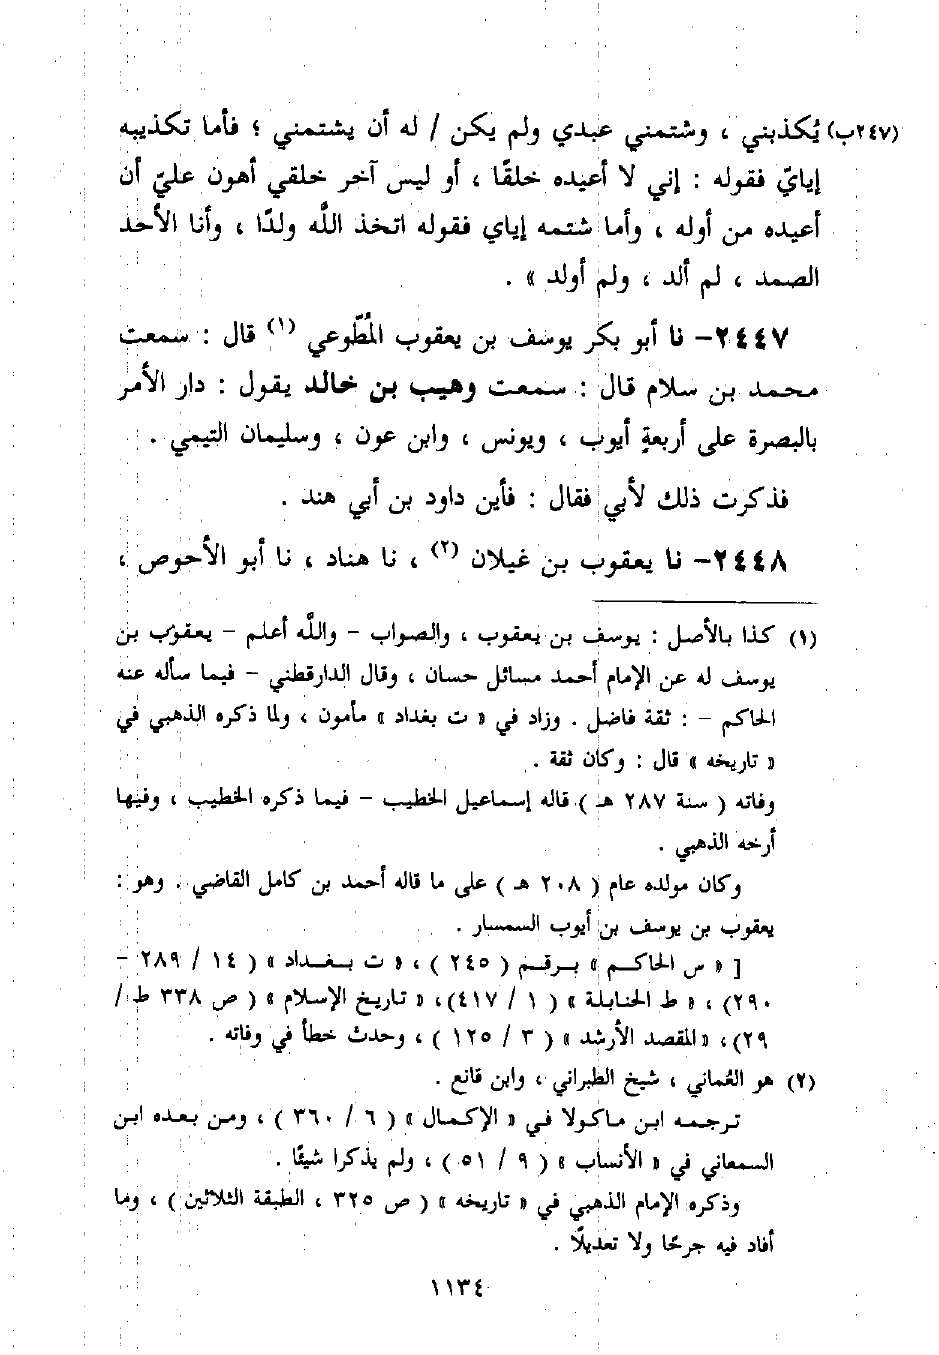 (٢٤٧ب) يُكذبني ، وشتمني عبدي ولم يكن / له أن يشتمني ؛ فأما تكذيبه
إيايّ فقوله : إني لا أعيده خلقًا ، أو ليس آخر خلقي أهون عليّ أن
أعيده من أوله ، وأما شتمه إياي فقوله اتخذ اللَّه ولدًا ، وأنا الأحد
الصمد ، لم ألد ، ولم أولد » .
٢٤٤٧– نا أبو بكر يوسف بن يعقوب المُطّوعي (١) قال : سمعت
محمد بن سلام قال : سمعت وهيب بن خالد يقول : دار الأمر
بالبصرة على أربعةٍ أيوب ، ويونس ، وابن عون ، وسليمان التيمي .
فذكرت ذلك لأبي فقال : فأين داود بن أبي هند .
٢٤٤٨– نا يعقوب بن غيلان (٢) ، نا هناد ، نا أبو الأحوص ،
(١) كذا بالأصل : يوسف بن يعقوب ، والصواب – واللَّه أعلم – يعقوب بن
يوسف له عن الإمام أحمد مسائل حسان ، وقال الدارقطني – فيما سأله عنه
الحاكم – : ثقة فاضل . وزاد في « ت بغداد » مأمون ، ولما ذكره الذهبي في
« تاريخه » قال : وكان ثقة .
وفاته ( سنة ٢٨٧ هـ ) قاله إسماعيل الخطيب – فيما ذكره الخطيب ، وفيها
أرخه الذهبي .
وكان مولده عام ( ٢٠٨ هـ ) على ما قاله أحمد بن كامل القاضي . وهو :
يعقوب بن يوسف بن أيوب السمسار .
[ « س الحاكم » برقم ( ٢٤٥ ) ، « ت بغداد » ( ١٤ / ٢٨٩ –
٢٩٠) ، « ط الحنابلة » ( ١ / ٤١٧)، « تاريخ الإسلام » ( ص ٣٣٨ ط /
٢٩)، «المقصد الأرشد » ( ٣ / ١٢٥ ) ، وحدث خطأ في وفاته .
(٢) هو العُماني ، شيخ الطبراني ، وابن قانع .
ترجمه ابن ماكولا في « الإكمال » ( ٦ / ٣٦٠ ) ، ومن بعده ابن
السمعاني في « الأنساب » ( ٩ / ٥١ ) ، ولم يذكرا شيئًا .
وذكره الإمام الذهبي في « تاريخه » ( ص ٣٢٥ ، الطبقة الثلاثين ) ، وما
أفاد فيه جرحًا ولا تعديلًا .
١١٣٤